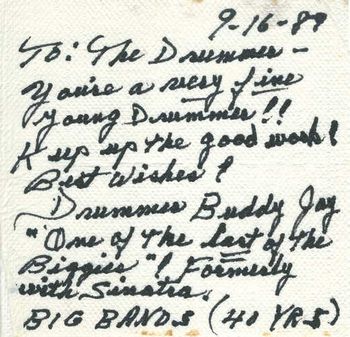 9-16-89
To: The Drummer -
You're a very fine
young Drummer!!
Keep up the good work!
Best Wishes!
Drummer Buddy Jay
"One of the last of the
Biggies"! Formerly
with Sinatra.
BIG BANDS (40 YRS)